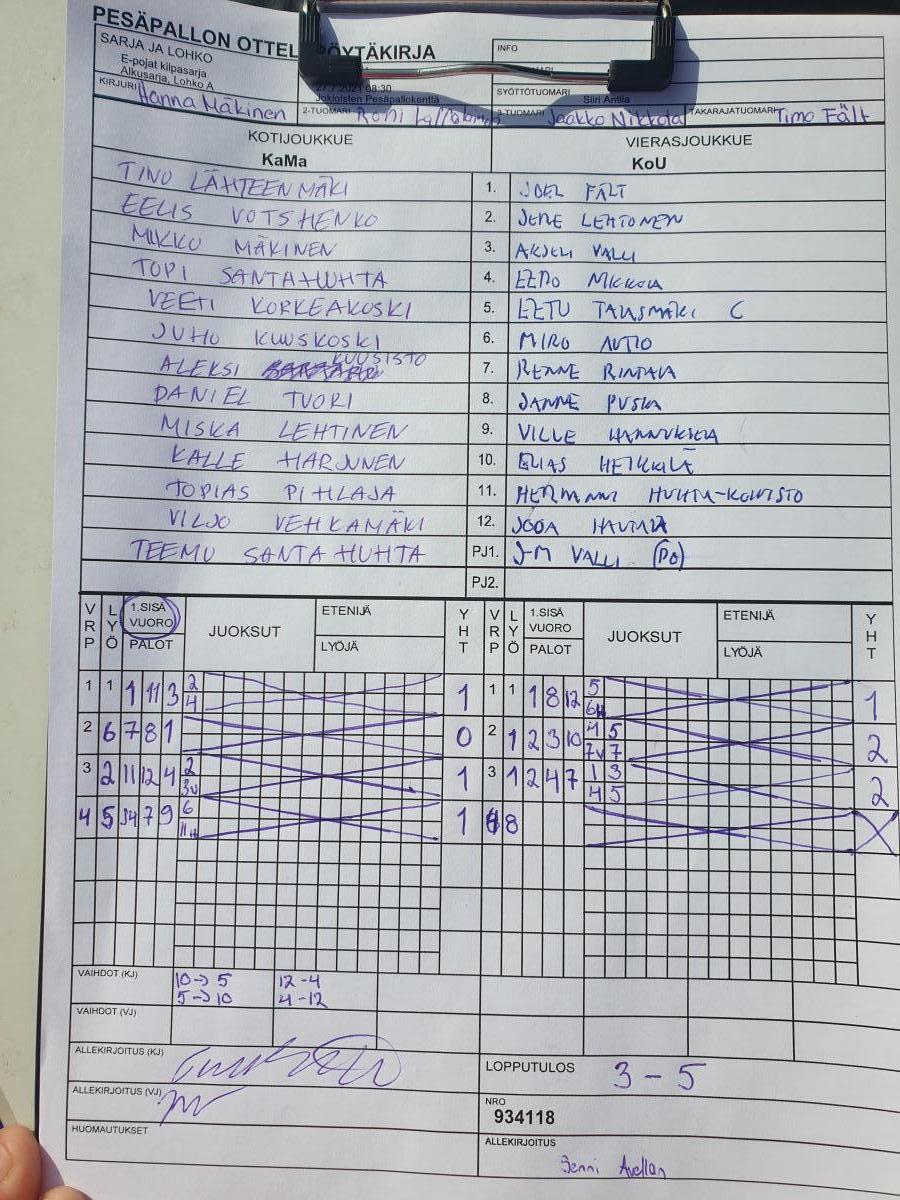 PESÄPALLON OTTEL PÖYTÄKIRJA
SARJA JA LOHKO
E-pojat kilpasarja
Alkusarja, Lohko A
INFO
27.7.2021 08:30
Jokioisten Pesäpallokenttä
SYÖTTÖTUOMARI
Siiri Antila
KIRJURI Hanna Mäkinen 2-TUOMARI Roni Jaakko Nikkola TAKARAJATUOMARI Timo Fält
KOTIJOUKKUE VIERASJOUKKUE
KaMa KoU
TINO LÄHTEENMÄKI 1. JOEL FÄLT
EELIS VOTSHENKO 2. JERE LEHTONEN
MIKKO MÄKINEN 3. AKSELI VALLI
TOPI SANTAHUHTA 4. EERO NIKKOLA
VEETI KORKEAKOSKI 5. EETU TAUSMÄKI C
JUHO KUUSKOSKI 6. MIRO AUTIO
ALEKSI KUUSISTO 7. RENNE RINTALA
DANIEL TUORI 8. JANNE PUSKA
MISKA LEHTINEN 9. VILLE HANNUKSELA
KALLE HARJUNEN 10. ELIAS HEIKKILÄ
TOPIAS PIHLAJA 11. HERMANNI HUHTA-KOIVISTO
VILJO VEHKAMÄKI 12. JOOA HAUTALA
TEEMU SANTAHUHTA PJ1. J-M VALLI (PO)
PJ2.
VRP LYÖ 1.SISÄ VUORO PALOT JUOKSUT ETENIJÄ LYÖJÄ YHT VRP LYÖ 1.SISÄ VUORO PALOT JUOKSUT ETENIJÄ LYÖJÄ YHT
1 1 1 11 3 2 4 1 1 1 1 8 12 5 6H 1
2 6 7 8 1 0 2 1 2 3 10 4 5 7V 7 2
3 2 11 12 4 2 3V 1 3 1 2 4 7 1 3 4 5 2
4 5 7 9 6 11H 1 8 X
VAIHDOT (KJ) 10→5 12-4
5→10 4-12
VAIHDOT (VJ)
ALLEKIRJOITUS (KJ)
LOPPUTULOS 3-5
ALLEKIRJOITUS (VJ)
NRO
934118
HUOMAUTUKSET
ALLEKIRJOITUS
Jenni Avellan